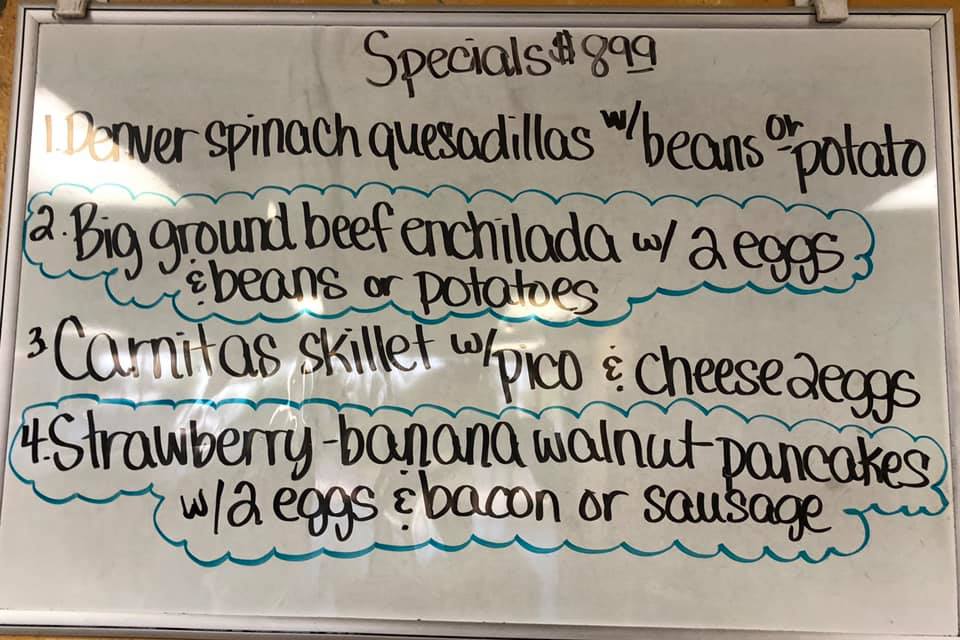 Specials $8.99
1. Denver spinach quesadillas w/ beans or potato
2. Big ground beef enchilada w/ 2 eggs
& beans or potatoes
3 Carnitas skillet w/ pico & cheese 2 eggs
4. Strawberry-banana walnut pancakes
w/ 2 eggs & bacon or sausage